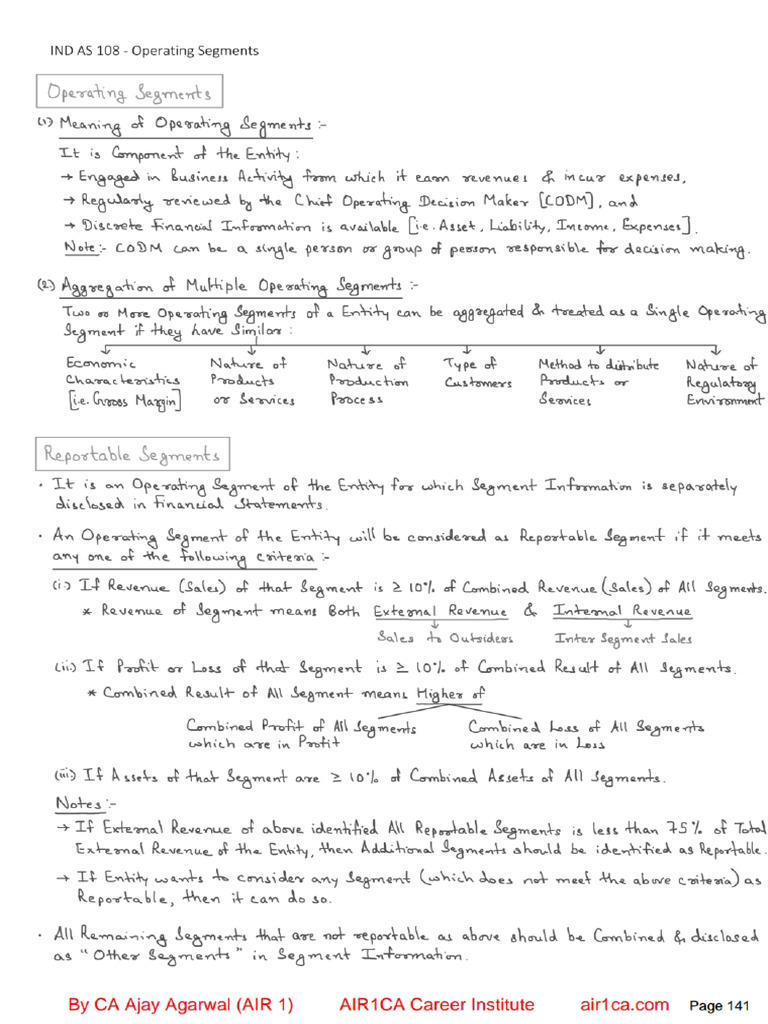 IND AS 108 - Operating Segments
Operating Segments
(1) Meaning of Operating Segments :-
It is Component of the Entity :
→ Engaged in Business Activity from which it earn revenues & incur expenses,
→ Regularly reviewed by the Chief Operating Decision Maker [CODM], and
→ Discrete Financial Information is available [i.e. Asset, Liability, Income, Expenses].
Note :- CODM can be a single person or group of person responsible for decision making.
(2) Aggregation of Multiple Operating Segments :-
Two or More Operating Segments of a Entity can be aggregated & treated as a Single Operating
Segment if they have Similar :
Economic Characteristics [i.e. Gross Margin]
Nature of Products or Services
Nature of Production Process
Type of Customers
Method to distribute Products or Services
Nature of Regulatory Environment
Reportable Segments
• It is an Operating Segment of the Entity for which Segment Information is separately
disclosed in Financial Statements.
• An Operating Segment of the Entity will be considered as Reportable Segment if it meets
any one of the following criteria :-
(i) If Revenue (Sales) of that Segment is ≥ 10% of Combined Revenue (Sales) of All Segments.
* Revenue of Segment means Both External Revenue & Internal Revenue
Sales to Outsiders Inter Segment Sales
(ii) If Profit or Loss of that Segment is ≥ 10% of Combined Result of All Segments.
* Combined Result of All Segment means Higher of
Combined Profit of All Segments which are in Profit
Combined Loss of All Segments which are in Loss
(iii) If Assets of that Segment are ≥ 10% of Combined Assets of All Segments.
Notes :-
→ If External Revenue of above identified All Reportable Segments is less than 75% of Total
External Revenue of the Entity, then Additional Segments should be identified as Reportable.
→ If Entity wants to consider any Segment (which does not meet the above criteria) as
Reportable, then it can do so.
• All Remaining Segments that are not reportable as above should be Combined & disclosed
as "Other Segments" in Segment Information.
By CA Ajay Agarwal (AIR 1) AIR1CA Career Institute air1ca.com Page 141